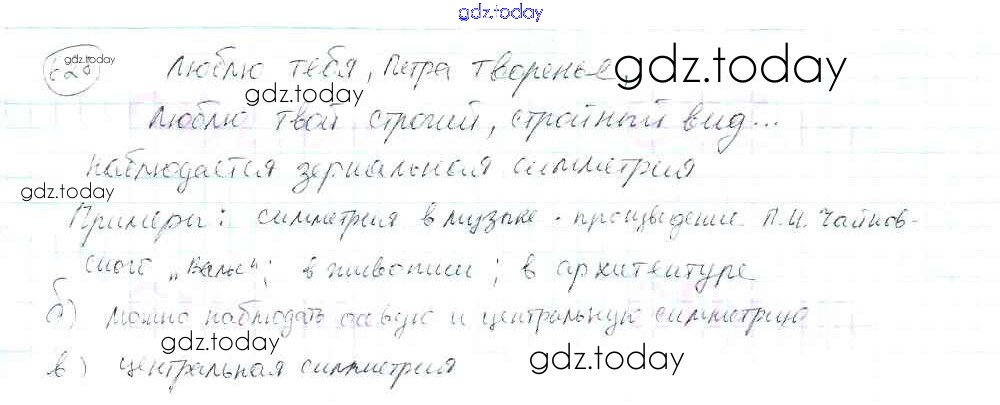 gdz.today
с 20 gdz.today
Люблю тебя, Петра творенье, gdz.today
gdz.today
Люблю твой строгий, стройный вид...
наблюдается зеркальная симметрия
gdz.today
Примеры: симметрия в музыке - произведение П.И. Чайков-
ского „Вальс"; в живописи; в архитектуре
б) можно наблюдать осевую и центральную симметрию
в) центральная симметрия
gdz.today